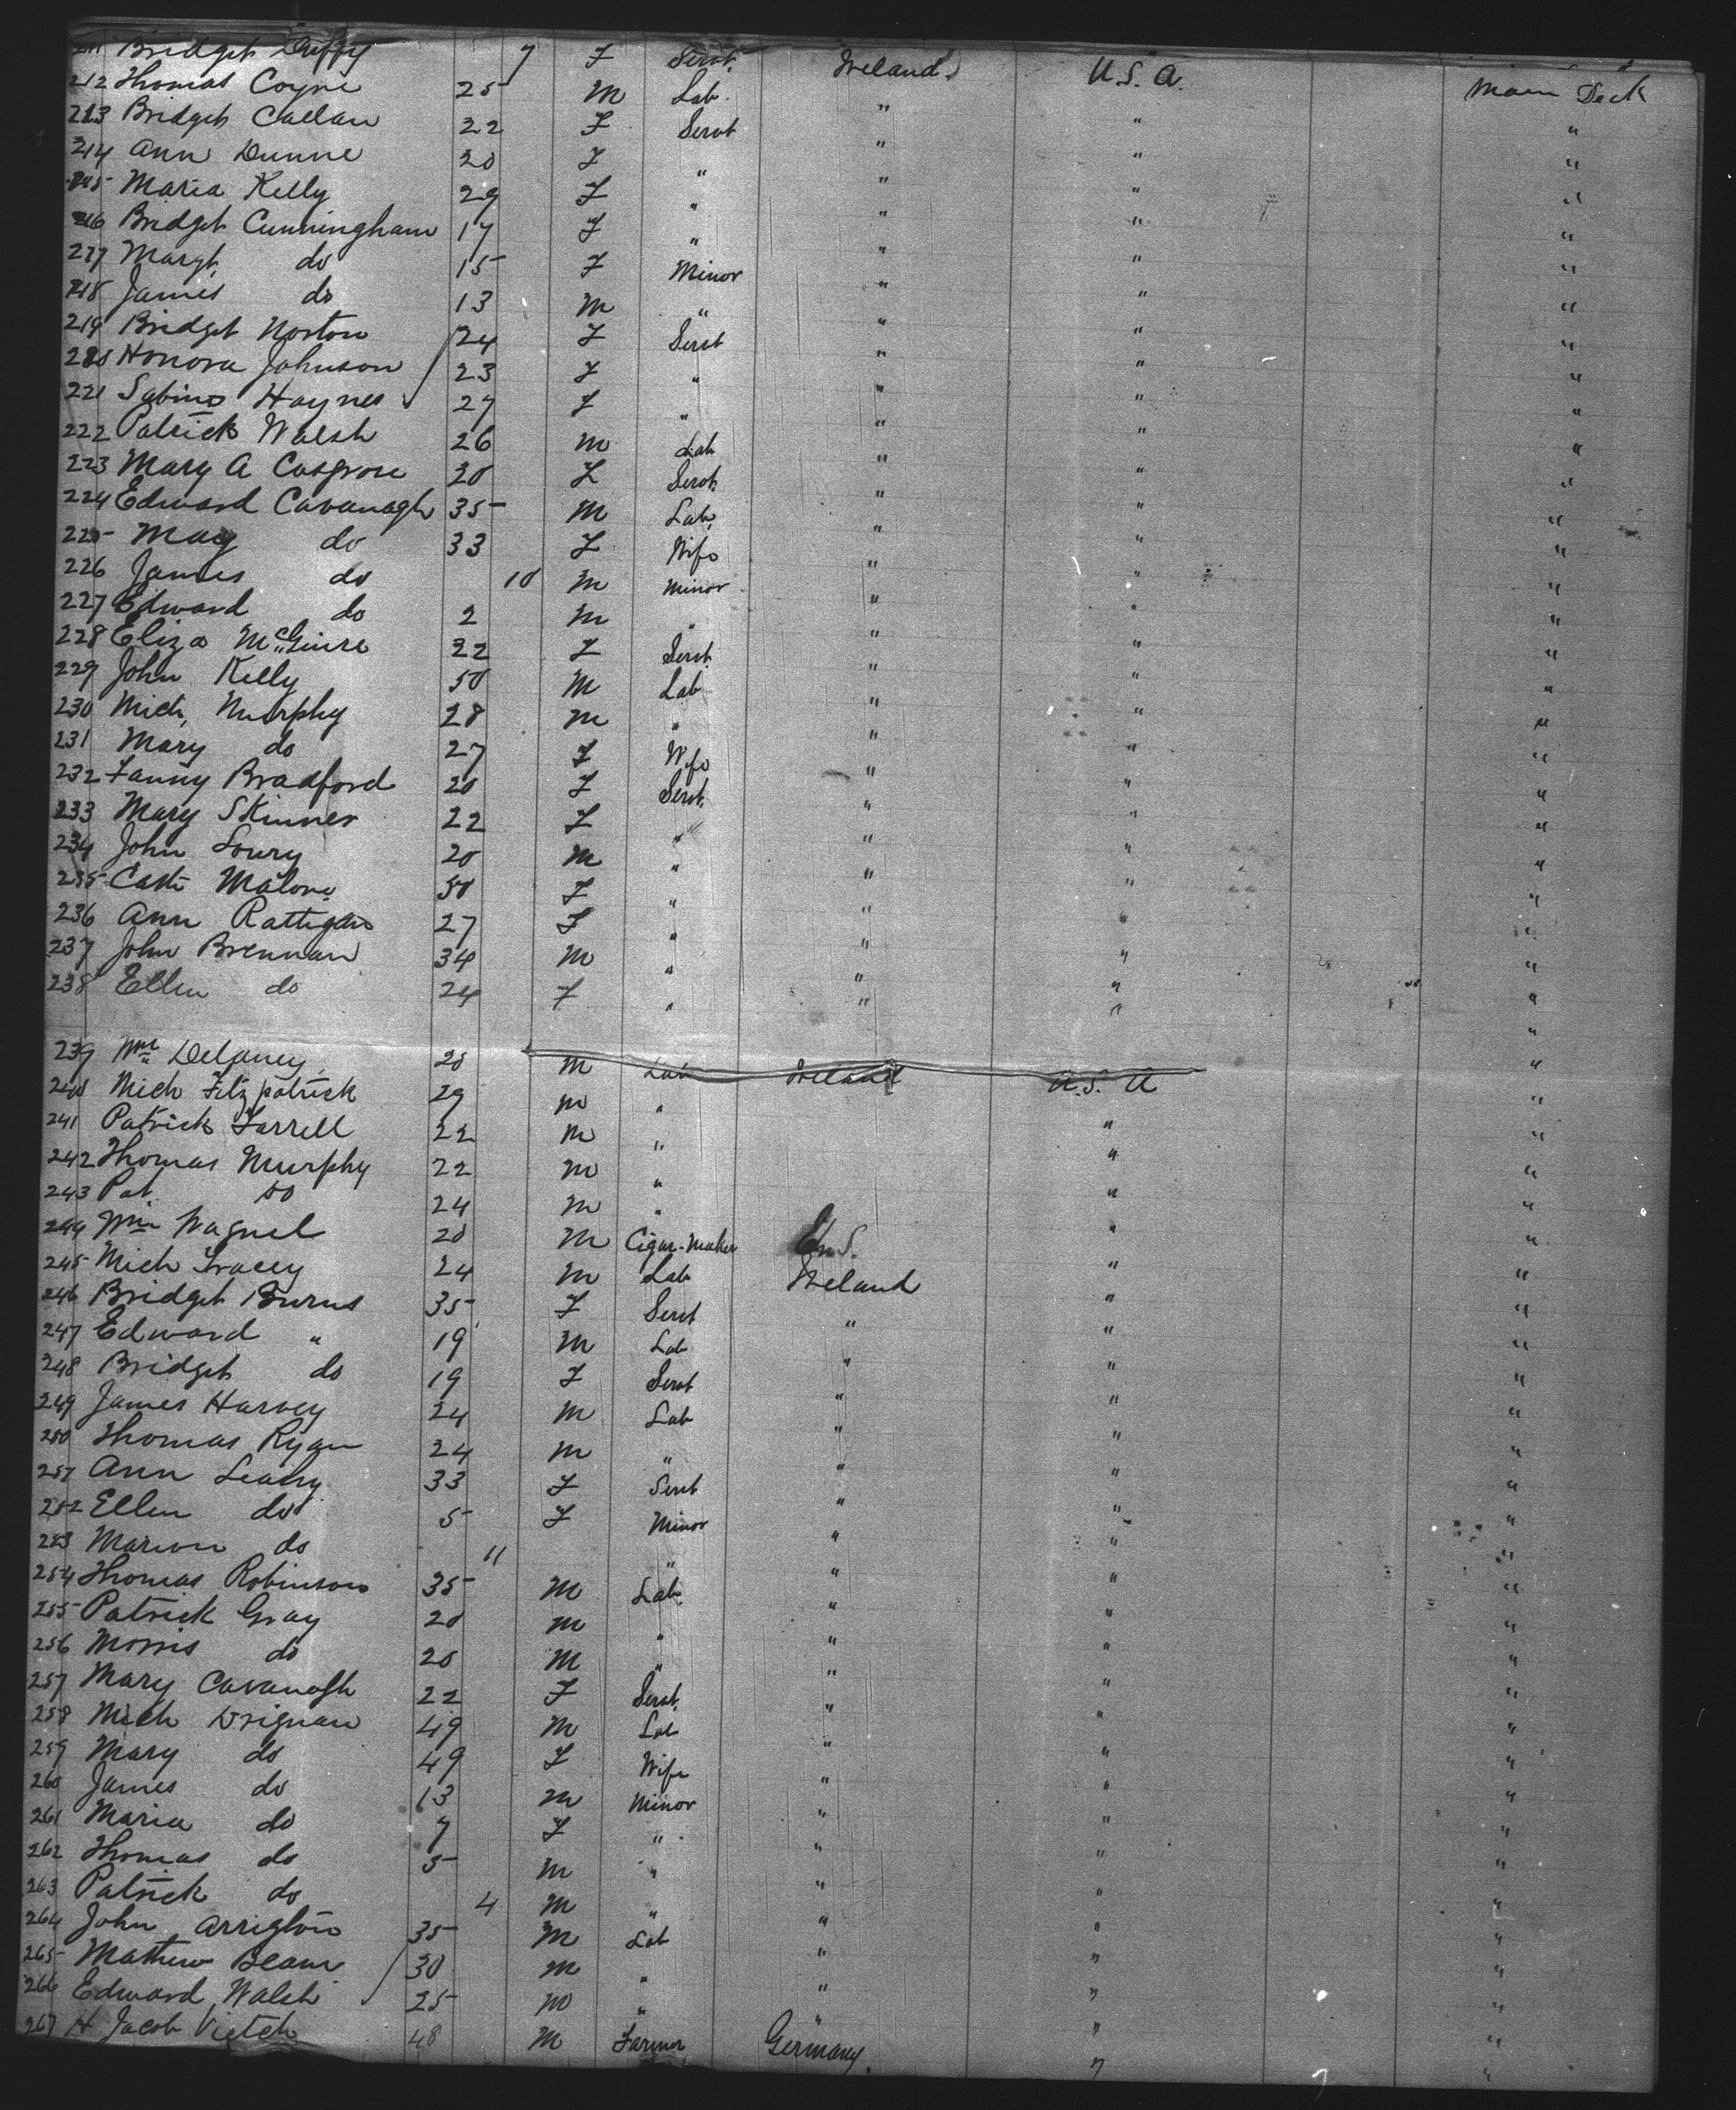 211 Bridget Duffy 7 F Servt. Ireland U.S.A. Main Deck
212 Thomas Coyne 25 M Lab. " " "
213 Bridget Callan 22 F Servt " " "
214 Ann Dunne 20 F " " " "
215 Maria Kelly 29 F " " " "
216 Bridget Cunningham 17 F " " " "
217 Margt. do 15 F Minor " " "
218 James do 13 M " " " "
219 Bridget Norton 24 F Servt " " "
220 Honora Johnson 23 F " " " "
221 Sabina Haynes 27 F " " " "
222 Patrick Walsh 26 M Lab " " "
223 Mary A Cosgrove 20 F Servt. " " "
224 Edward Cavanagh 35 M Lab. " " "
225 May do 33 F Wife " " "
226 James do 10 M Minor " " "
227 Edward do 2 M " " " "
228 Eliza McGuire 22 F Servt. " " "
229 John Kelly 50 M Lab " " "
230 Mich. Murphy 28 M " " " "
231 Mary do 27 F Wife " " "
232 Fanny Bradford 20 F Servt. " " "
233 Mary Skinner 22 F " " " "
234 John Lowry 20 M " " " "
235 Cath Malone 50 F " " " "
236 Ann Rattigan 27 F " " " "
237 John Brennan 34 M " " " "
238 Ellen do 24 F " " " "
239 Wm Delaney 20 M Lab Ireland U.S.A "
240 Mich Fitzpatrick 29 M " "
241 Patrick Farrell 22 M " " "
242 Thomas Murphy 22 M " " "
243 Pat do 24 M " " "
244 Wm Wagnel 20 M Cigar-Maker U.S. " "
245 Mich Tracey 24 M Lab Ireland " "
246 Bridget Burns 35 F Servt " " "
247 Edward " 19 M Lab " " "
248 Bridget do 19 F Servt " " "
249 James Harvey 24 M Lab " " "
250 Thomas Ryan 24 M " " " "
251 Ann Leahy 33 F Servt " " "
252 Ellen do 5 F Minor " " "
253 Marion do 11 " " " "
254 Thomas Robinson 35 M Lab. " " "
255 Patrick Gray 20 M " " " "
256 Morris do 20 M " " " "
257 Mary Cavanagh 22 F Servt. " " "
258 Mich Drignan 49 M Lab " " "
259 Mary do 49 F Wife " " "
260 James do 13 M Minor " " "
261 Maria do 7 F " " " "
262 Thomas do 5 M " " " "
263 Patrick do 4 M " " " "
264 John Arrigton 35 M Lab " " "
265 Mathew Beam 30 M " " " "
266 Edward Walsh 25 M " " " "
267 H Jacob Vietch 48 M Farmer Germany. " "